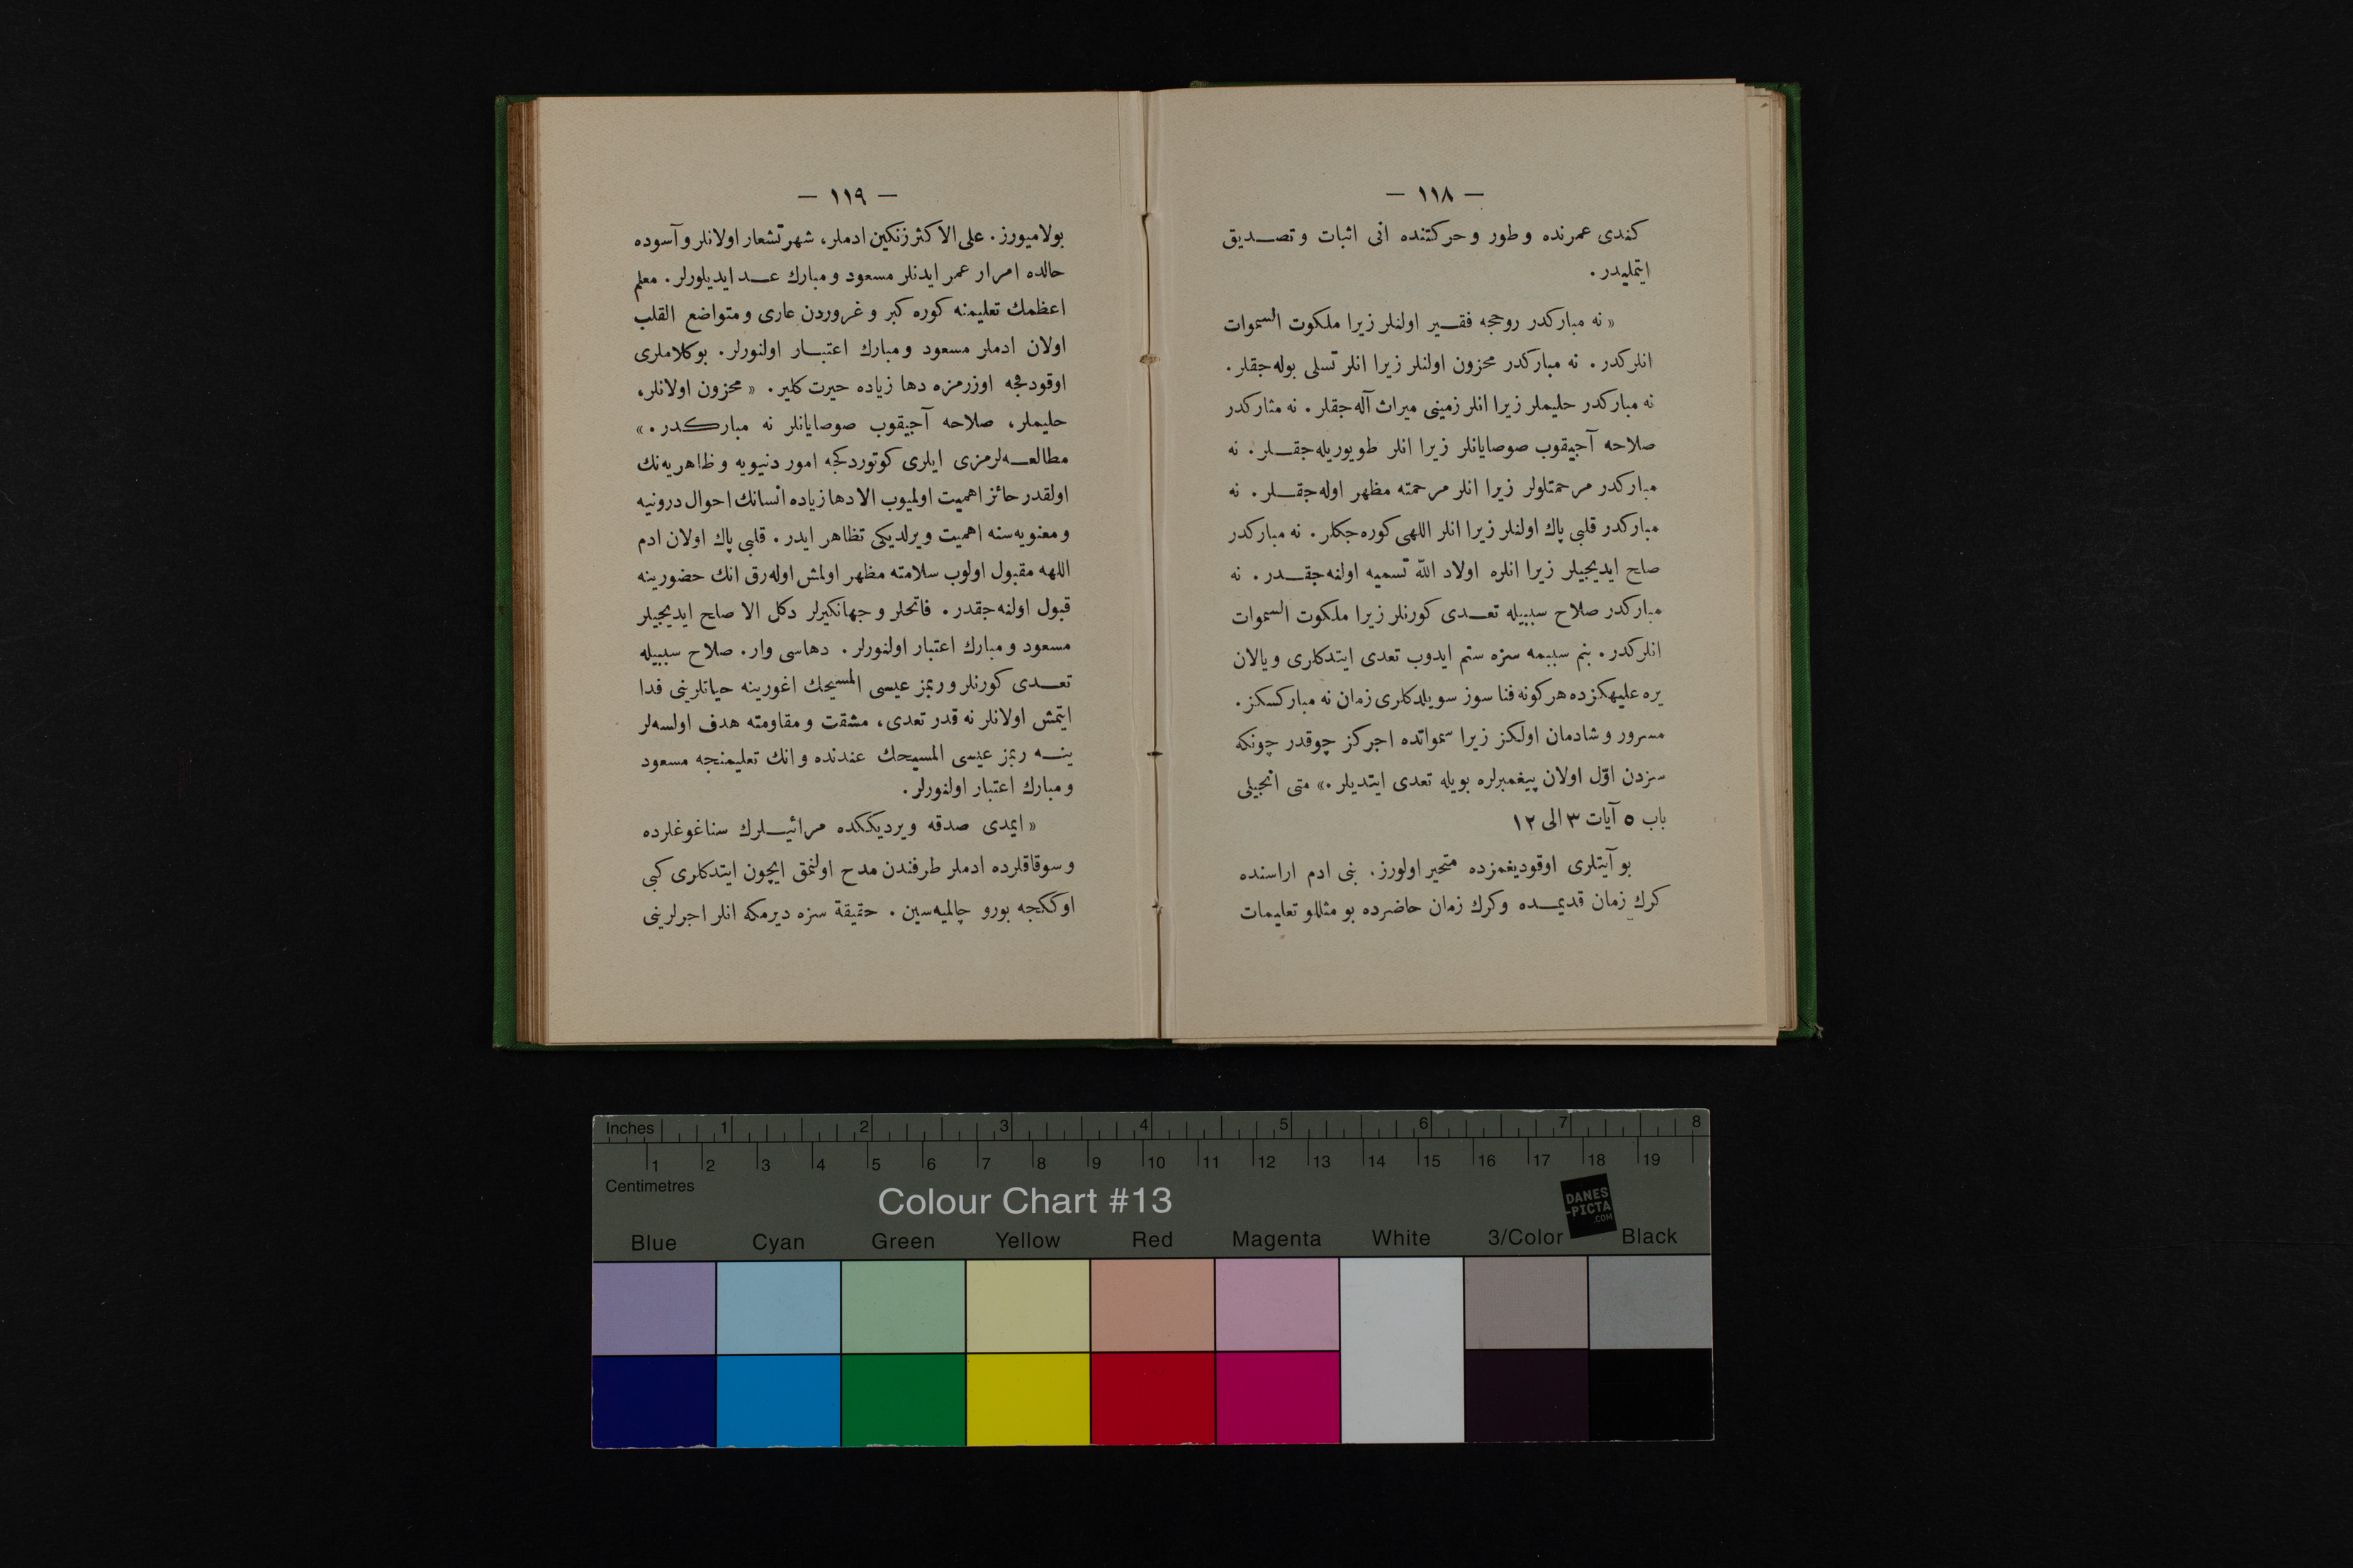 — ١١٨ —
كندى عمرنده وطور وحركتنده انى اثبات وتصديق
ايتمليدر.
«نه مباركدر روحجه فقير اولنلر زيرا ملكوت السموات
انلركدر. نه مباركدر محزون اولنلر زيرا انلر تسلى بوله‌جقلر.
نه مباركدر حليملر زيرا انلر زمينى ميراث آله‌جقلر. نه مثاركدر
صلاحه آجيقوب صوصايانلر زيرا انلر طويوريله‌جقلر. نه
مباركدر مرحمتلولر زيرا انلر مرحمته مظهر اوله‌جقلر. نه
مباركدر قلبى پاك اولنلر زيرا انلر اللهى كوره‌جكلر. نه مباركدر
صلح ايديجيلر زيرا انلره اولاد الله تسميه اولنه‌جقدر. نه
مباركدر صلاح سببيله تعدى كورنلر زيرا ملكوت السموات
انلركدر. بنم سببمه سزه ستم ايدوب تعدى ايتدكلرى ويالان
يره عليهكزده هركونه فنا سوز سويلدكلرى زمان نه مباركسكز.
مسرور وشادمان اولكز زيرا سمواتده اجركز چوقدر چونكه
سزدن اوّل اولان پيغمبرلره بويله تعدى ايتديلر.» متى انجيلى
باب ٥ آيات ٣ الى ١٢
بو آيتلرى اوقوديغمزده متحير اولورز. بنى ادم اراسنده
كرك زمان قديمده وكرك زمان حاضرده بو مثللو تعليمات
— ١١٩ —
بولاميورز. على الاكثر زنكين ادملر، شهرتشعار اولانلر و آسوده
حالده امرار عمر ايدنلر مسعود ومبارك عد ايديلورلر. معلم
اعظمك تعليمنه كوره كبر و غروردن عارى ومتواضع القلب
اولان ادملر مسعود ومبارك اعتبار اولنورلر. بوكلاملرى
اوقودقجه اوزرمزه دها زياده حيرت كلير. «محزون اولانلر،
حليملر، صلاحه آجيقوب صوصايانلر نه مباركدر.»
مطالعه‌لرمزى ايلرى كوتوردكجه امور دنيويه و ظاهريه‌نك
اولقدر حائز اهميت اولميوب الا دها زياده انسانك احوال درونيه
ومعنويه‌سنه اهميت ويرلديكى تظاهر ايدر. قلبى پاك اولان ادم
اللهه مقبول اولوب سلامته مظهر اولمش اوله‌رق انك حضورينه
قبول اولنه‌جقدر. فاتحلر و جهانكيرلر دكل الا صلح ايديجيلر
مسعود ومبارك اعتبار اولنورلر. دهاسى وار. صلاح سببيله
تعدى كورنلر وربمز عيسى المسيحك اغورينه حياتلرينى فدا
ايتمش اولانلر نه قدر تعدى، مشقت ومقاومته هدف اولسه‌لر
ينه ربمز عيسى المسيحك عندنده وانك تعليمنجه مسعود
ومبارك اعتبار اولنورلر.
«ايمدى صدقه ويرديككده مرائيلرك سناغوغلرده
وسوقاقلرده ادملر طرفندن مدح اولنمق ايچون ايتدكلرى كبى
اوككجه بورو چالميه‌سين. حقيقة سزه ديرمكه انلر اجرلرينى
Inches 1 2 3 4 5 6 7 8
1 2 3 4 5 6 7 8 9 10 11 12 13 14 15 16 17 18 19
Centimetres
Colour Chart #13
DANES
-PICTA
.COM
Blue Cyan Green Yellow Red Magenta White 3/Color Black